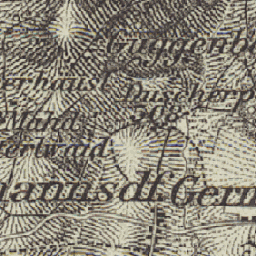 Guggenb
erhaust
Duscherp
508
Wald
erwald
annsdf.
Germ